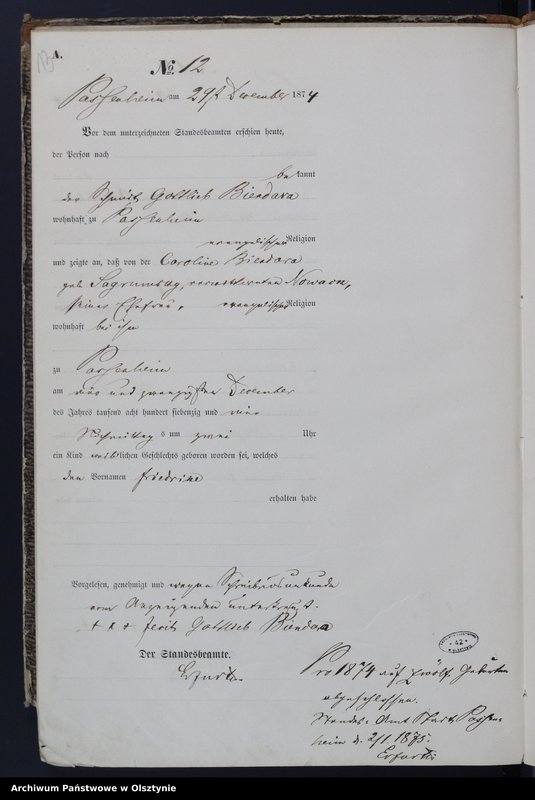 A.
№ 12
Passenheim am 29t December 1874
Vor dem unterzeichneten Standesbeamten erschien heute,
der Person nach
bekannt
der Gottlieb Biendara
wohnhaft zu Passenheim
evangelischer Religion
und zeigte an, daß von der Caroline Biendara
geb. verwittweten
seiner Ehefrau, evangelischer Religion
wohnhaft bei ihm
zu Passenheim
am vier und zwanzigsten December
des Jahres tausend acht hundert siebenzig und vier
Nachmittags um zwei Uhr
ein Kind weiblichen Geschlechts geboren worden sei, welches
den Vornamen Friedrike
erhalten habe
Vorgelesen, genehmigt und wegen Schreibensunkunde
vom Anzeigenden unterkreuzt.
+ + + Gottlieb Biendara
Der Standesbeamte.
Pro 1874 auf zwölf Geburten
abgeschlossen.
Standes-Amt Stadt Passen-
heim d. 2/1. 1875.
42
Archiwum Państwowe w Olsztynie